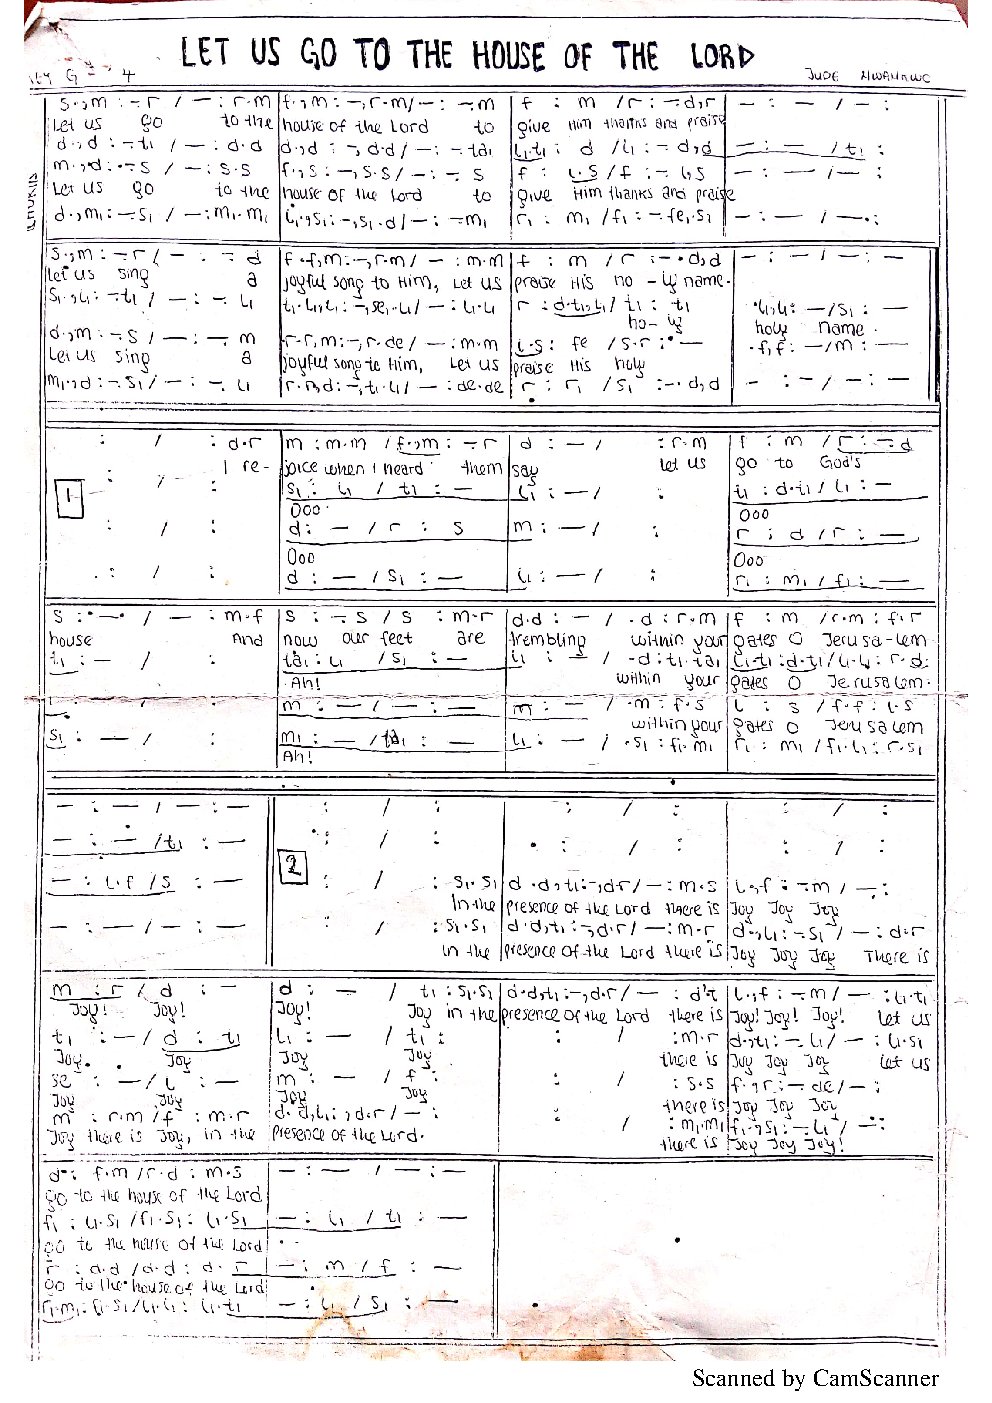 LET US GO TO THE HOUSE OF THE LORD
G 4 JUDE NWANKWO
s.,m : -.r / — : r.m f.,m : -,r.m / — : -.m f : m / r : -.d,r — : — / — :
Let us go to the house of the Lord to give Him thanks and praise
d.,d : -.t₁ / — : d.d d.,d : -,d.d / — : -.ta₁ l₁.t₁ : d / l₁ : -.d,d — : — / t₁ :
m.,d : -.s / — : s.s f.,s : -,s.s / — : -.s f : l.s / f : -.l,s — : — / — :
Let us go to the house of the Lord to give Him thanks and praise
d.,m₁ : -.s₁ / — : m₁.m₁ l₁.,s₁ : -,s₁.d / — : -.m₁ r₁ : m₁ / f₁ : -.fe₁,s₁ — : — / — :
s.,m : -.r / — : -.d f.f,m : -,r.m / — : m.m f : m / r : -.d,d — : — / — : —
Let us sing a joyful song to Him, Let us praise His no - ly name.
s₁.,l₁ : -.t₁ / — : -.l₁ t₁.l₁,l₁ : -,se₁.l₁ / — : l₁.l₁ r : d.t₁,l₁ / t₁ : t₁ .l₁,l₁ : — / s₁ : —
ho - ly holy name.
d.,m : -.s / — : -.m r.r,m : -,r.de / — : m.m l.s : fe / s.r : — .f,f : — / m : —
Let us sing a joyful song to Him, Let us praise His holy
m₁.,d : -.s₁ / — : -.l₁ r.r,d : -,t₁.l₁ / — : de.de r : r₁ / s₁ : -.d,d — : — / — : —
: / : d.r m : m.m / f.,m : -.r d : — / : r.m f : m / r : -.d
I re- joice when I heard them say let us go to God's
1
: / : s₁ : l₁ / t₁ : — l₁ : — / : t₁ : d.t₁ / l₁ : —
Ooo Ooo
: / : d : — / r : s m : — / : r : d / r : —
Ooo Ooo
: / : d : — / s₁ : — l₁ : — / : r₁ : m₁ / f₁ : —
s : — / — : m.f s : -.s / s : m.r d.d : — / .d : r.m f : m / r.m : f.r
house And now our feet are trembling within your gates O Jerusa-lem
t₁ : — / : ta₁ : l₁ / s₁ : — l₁ : — / -.d : t₁.ta₁ l₁.t₁ : d.t₁ / l₁.l₁ : r.d
Ah! within your gates O Jerusalem.
m : — / — : — m : — / .m : f.s l : s / f.f : l.s
within your gates O Jerusalem
s₁ : — / : m₁ : — / ta₁ : — l₁ : — / .s₁ : f₁.m₁ r₁ : m₁ / f₁.l₁ : r.s₁
Ah!
— : — / — : — : / : : / : : / :
— : — / t₁ : — : / : : / : : / :
2
— : l.f / s : — : / : s₁.s₁ d.d,t₁ : -,d.r / — : m.s l.,f : -.m / — :
In the presence of the Lord there is Joy Joy Joy
— : — / — : — : / : s₁.s₁ d.d,t₁ : -,d.r / — : m.r d.,l₁ : -.s₁ / — : d.r
in the presence of the Lord there is Joy Joy Joy There is
m : r / d : — d : — / t₁ : s₁.s₁ d.d,t₁ : -,d.r / — : d'.t l.,f : -.m / — : l₁.t₁
Joy! Joy! Joy! Joy in the presence of the Lord there is Joy! Joy! Joy! let us
t₁ : — / d : t₁ l₁ : — / t₁ : : / : m.r d.,t₁ : -.l₁ / — : l₁.s₁
Joy. Joy Joy Joy there is Joy Joy Joy let us
se : — / l : — m : — / f : : / : s.s f.,r : -.de / — :
Joy Joy Joy Joy there is Joy Joy Joy
m : r.m / f : m.r d.d,l₁ : -,d.r / — : : / : m₁.m₁ f₁.,s₁ : -.l₁ / — :
Joy there is Joy, in the presence of the Lord. there is Joy Joy Joy!
d : f.m / r.d : m.s — : — / — : —
go to the house of the Lord
f₁ : l₁.s₁ / f₁.s₁ : l₁.s₁ — : l₁ / t₁ : —
go to the house of the Lord
r : d.d / d.d : d.r — : m / f : —
go to the house of the Lord
r₁.m₁ : f₁.s₁ / l₁.l₁ : l₁.t₁ — : l₁ / s₁ : —
Scanned by CamScanner